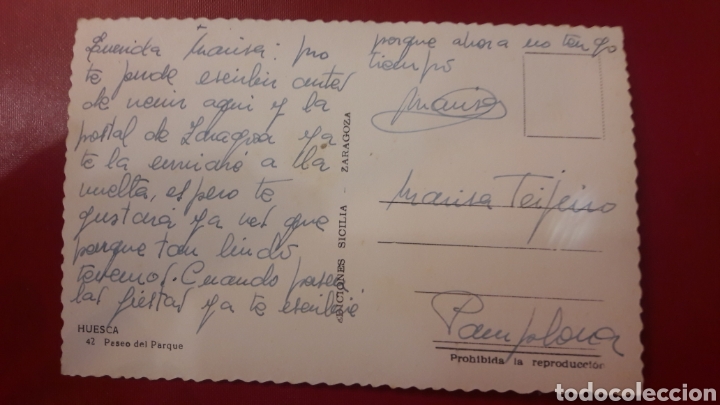 Querida Marisa: no
te pude escribir antes
de venir aqui y la
postal de Zaragoza ya
te la enviaré a lla
vuelta, espero te
gustará ya ves que
parque tan lindo
tenemos. Cuando pasen
las fiestas ya te escribiré
porque ahora no tengo
tiempo
Marisa
Marisa Teijeiro
Pamplona
EDICIONES SICILIA - ZARAGOZA
HUESCA
42 Paseo del Parque
Prohibida la reproducción
todocoleccion